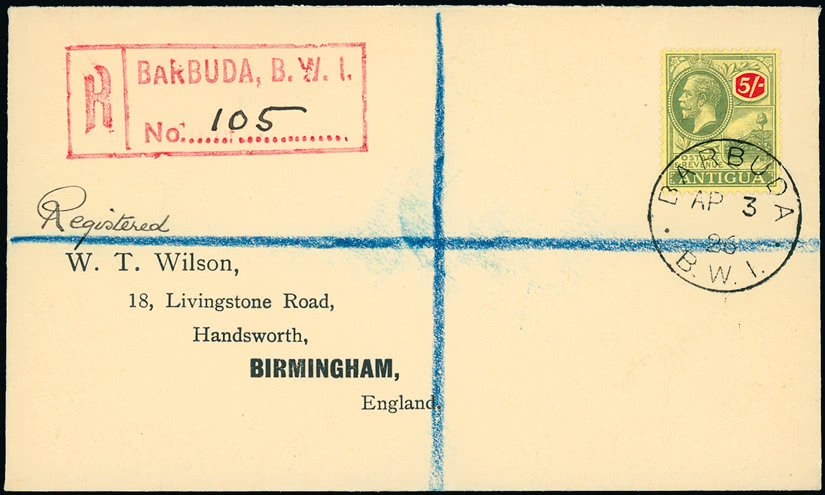 R
BARBUDA, B. W. I.
No. 105
5/-
POSTAGE
& REVENUE
ANTIGUA
BARBUDA
AP 3
B. W. I.
Registered
W. T. Wilson,
18, Livingstone Road,
Handsworth,
BIRMINGHAM,
England.